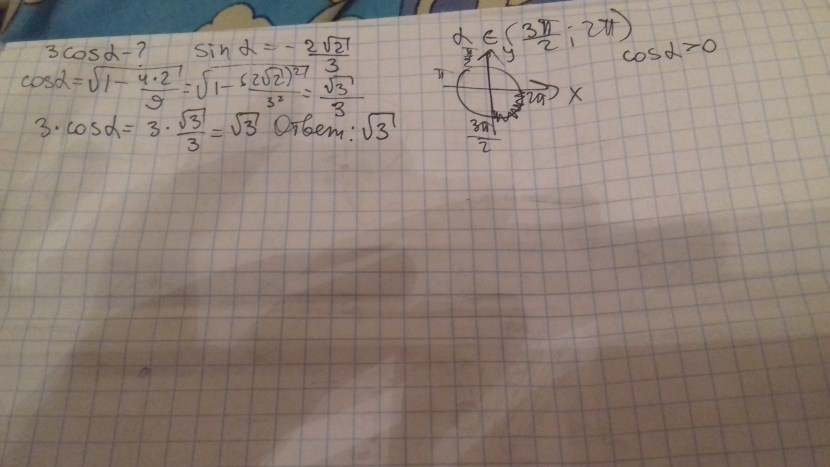 3cosα-? sinα = - 2√2/3 α ∈ (3π/2 ; 2π)
cosα>0
cosα = √1 - 4·2/9 = √1 - (2√2)²/3² = √3/3
3·cosα = 3·√3/3 = √3 Ответ: √3
π/2 y
π 2π x
3π/2